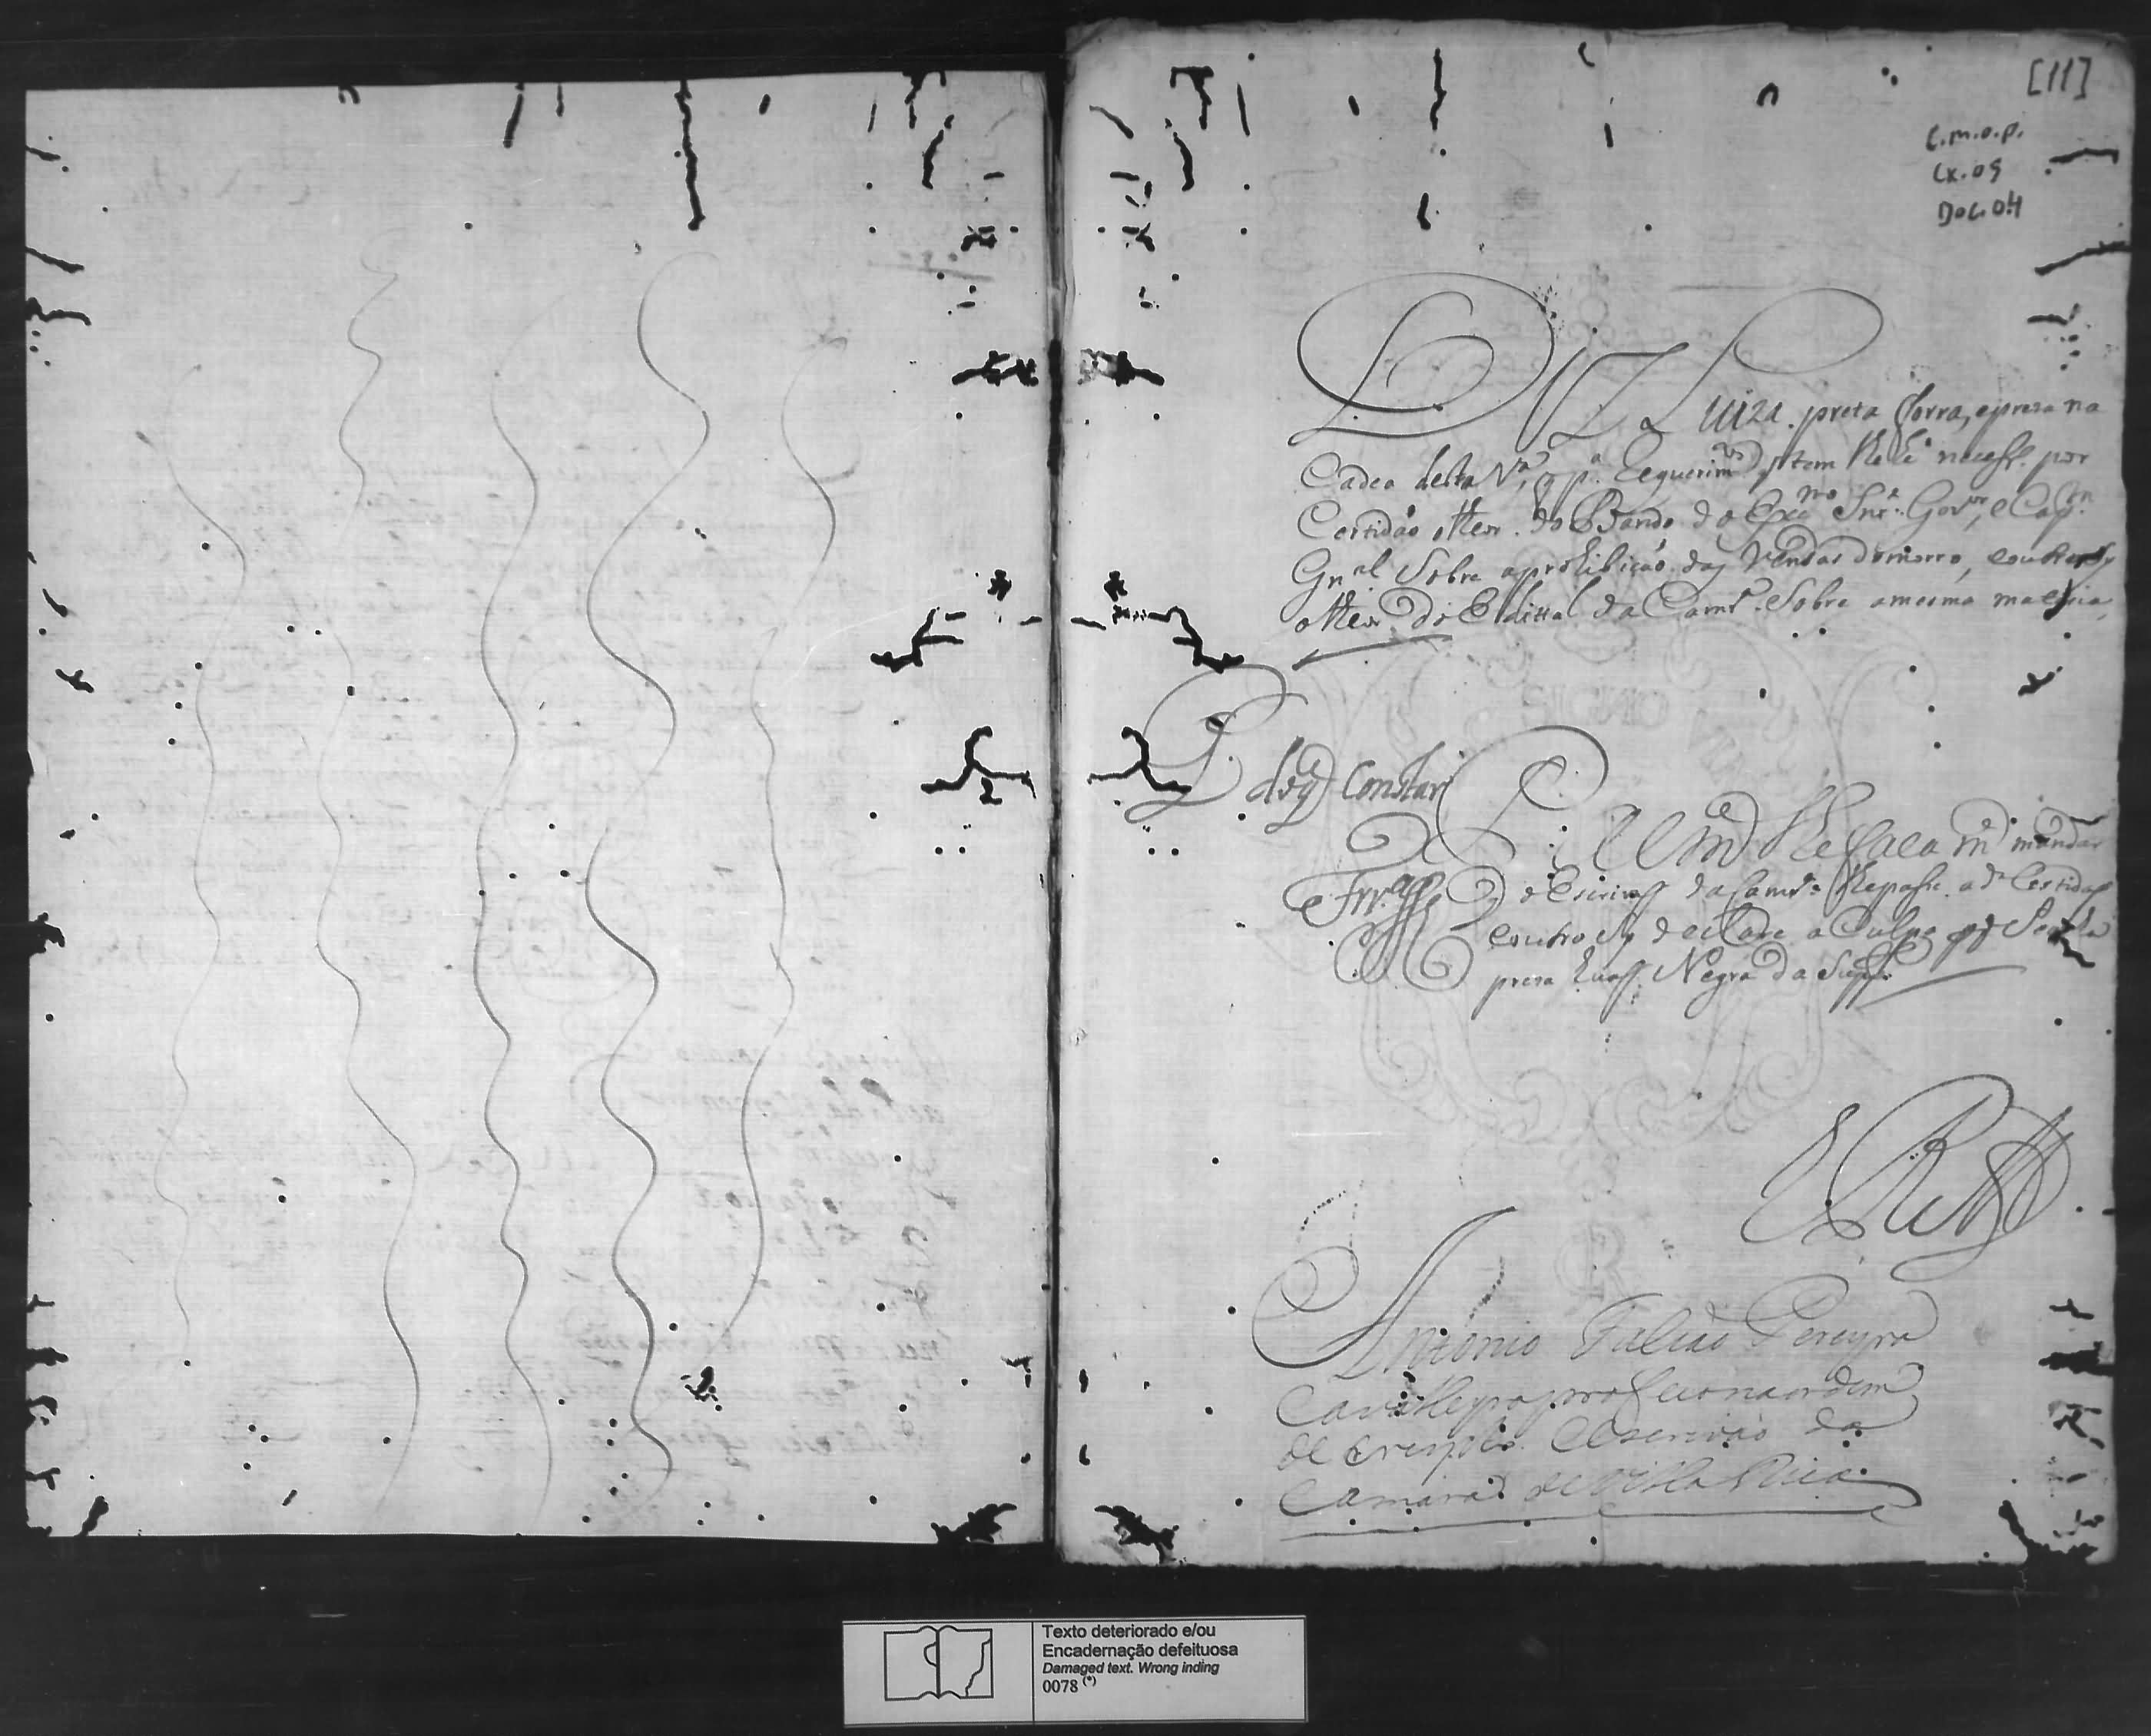 [11]
C.M.O.P.
Cx. 09
Doc. 04
Diz Luiza preta forra, e preza na
Cadea desta V.ª, q p.ª Requerim.tos q tem lhe he necessr.º por
Certidão o theor do Bando do Exc.mo Snr. Gov.or, e Cap.m
Gn.al Sobre a prohibicão das Vendas do morro, e outro sy
o theor do Edital da Camr.ª Sobre a mesma materia,
P. do q Constar
P. a Vm.ce lhe faca m.ce mandar
q o Escrivão da Camr.ª lhe passe a d.ª Certidão
e outro sy declare a Culpa
preza hua Negra da Supp.e
E R M.ce
Antonio Falcão Pereyra
Cavalleyro professo na ordem
de Cresto Escrivão da
Camara de Villa Rica
SIGNO
Texto deteriorado e/ou
Encadernação defeituosa
Damaged text. Wrong inding
0078 (*)